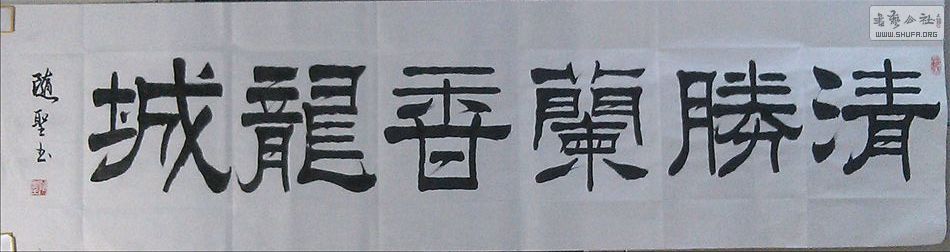 清勝蘭香龍城
隨聖书
书艺公社
WWW.SHUFA.ORG